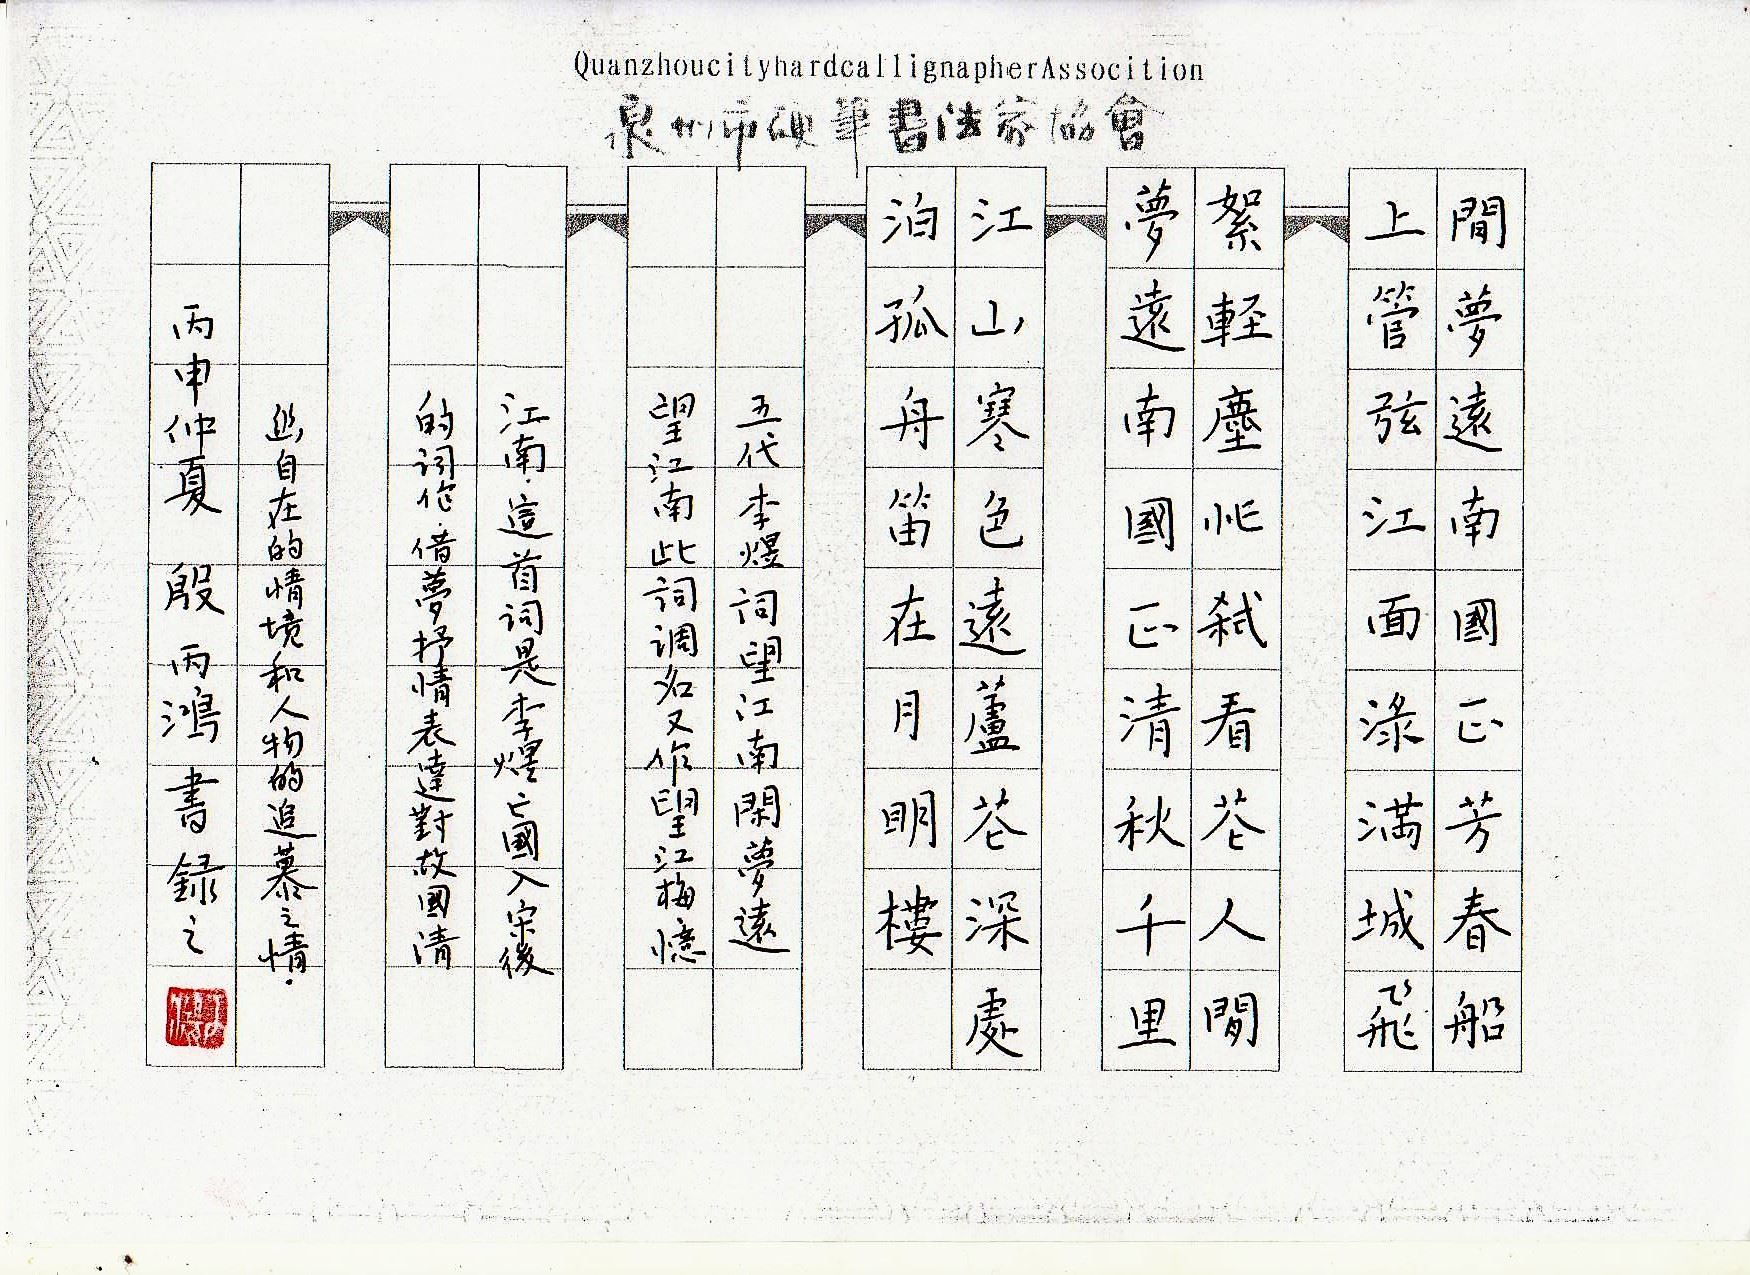 QuanzhoucityhardcallignapherAssocition
泉州市硬筆書法家協會
閒夢遠南國正芳春船
上管弦江面淥滿城飛
絮軽塵忙弒看花人閒
夢遠南國正清秋千里
江山寒色遠蘆花深處
泊孤舟笛在月明樓
五代李煜詞望江南閑夢遠
望江南此詞調名又作望江梅憶
江南.這首詞是李煜亡國入宋後
的詞作.借夢抒情表達對故國清
幽自在的情境和人物的追慕之情.
丙申仲夏 殷丙鴻書録之